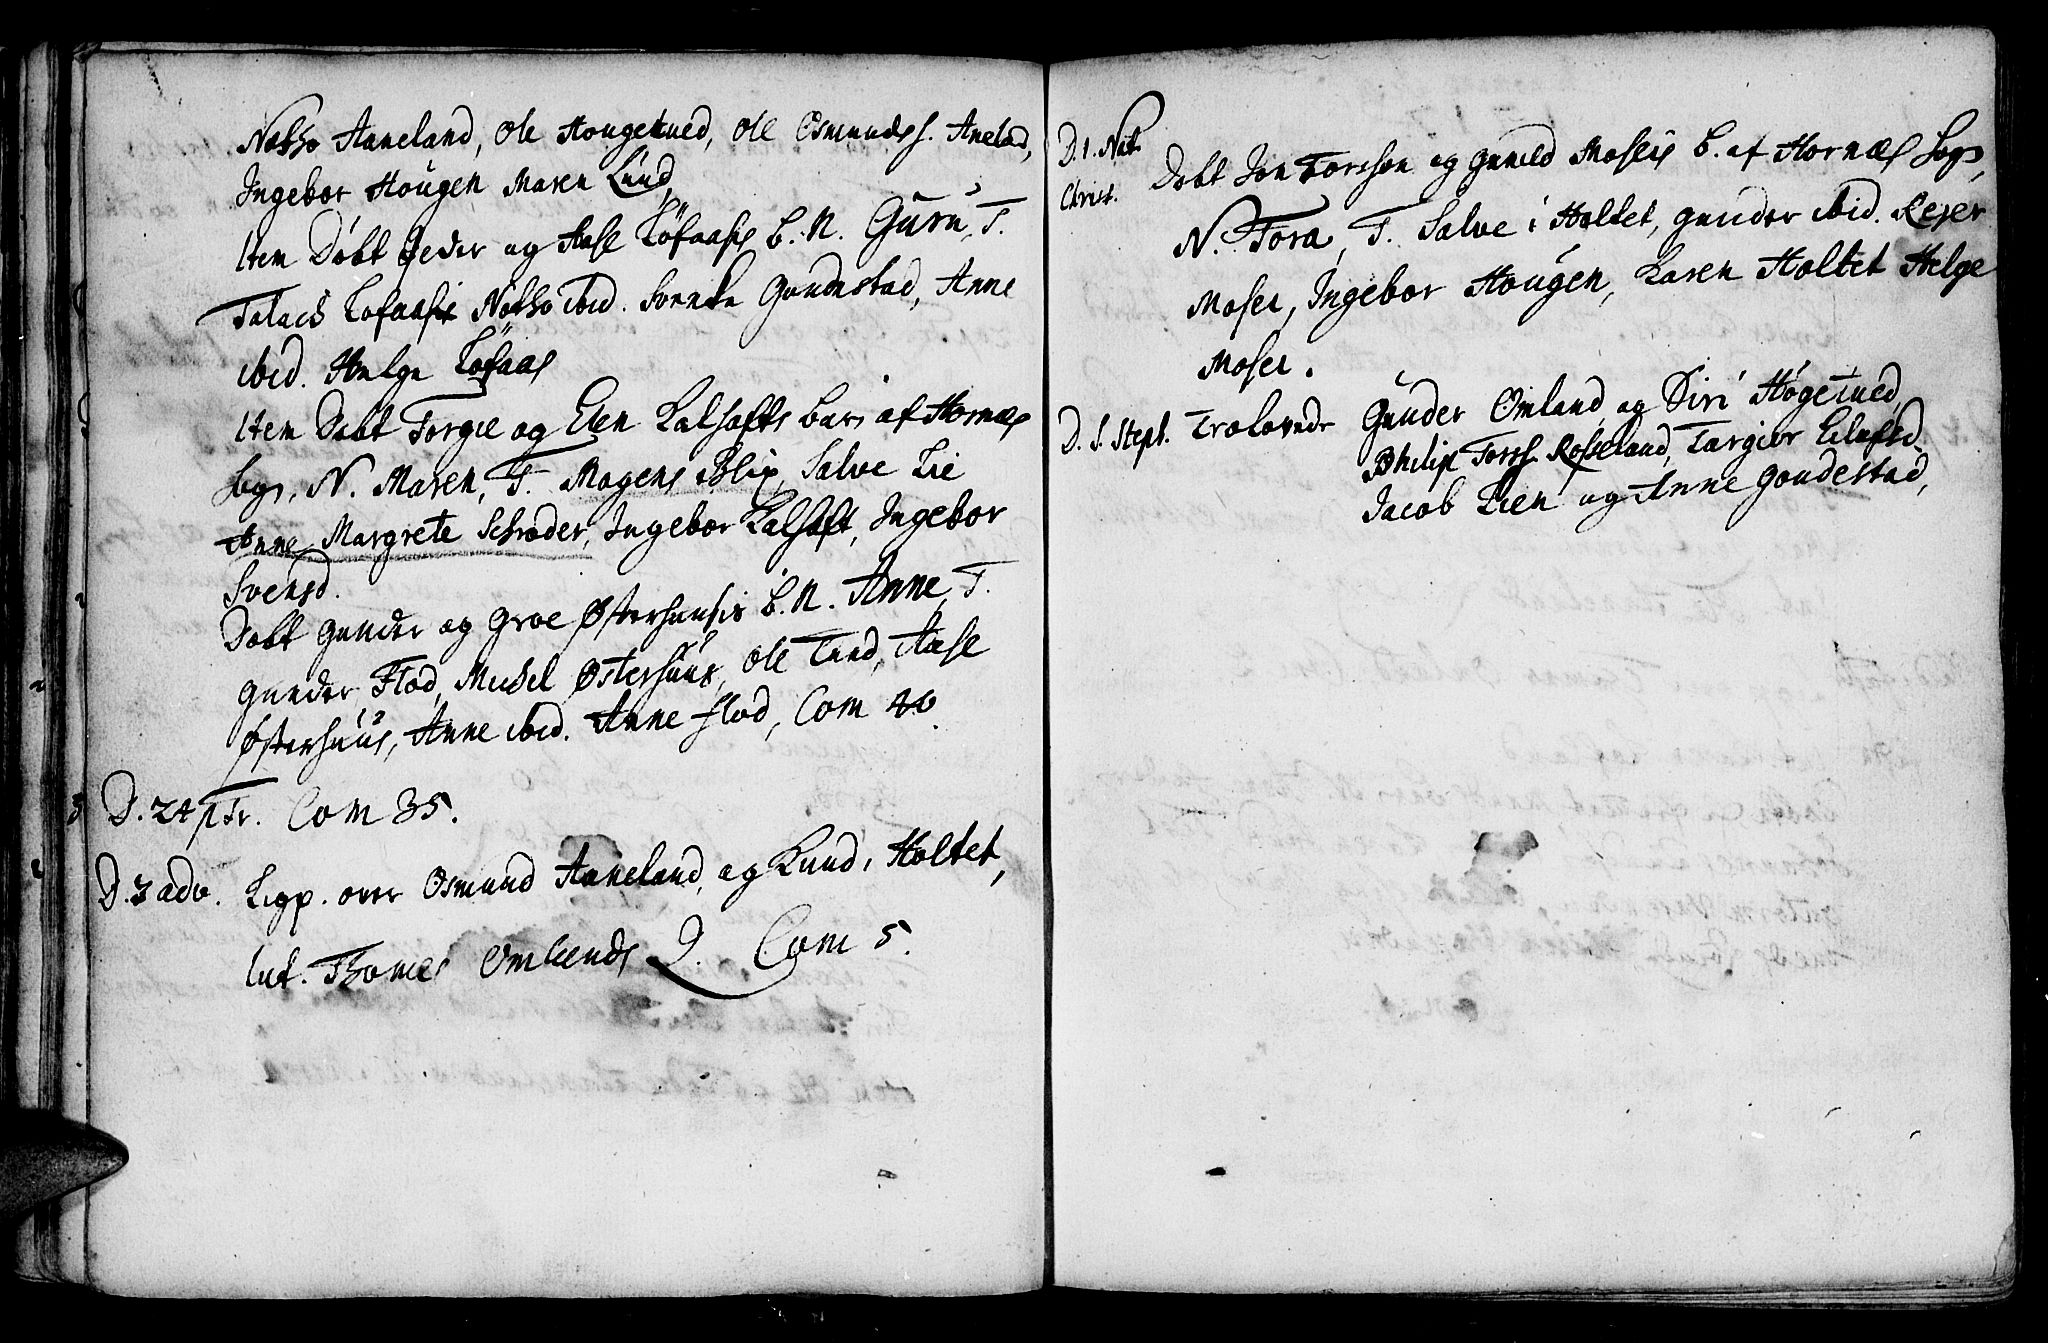 Notho Aaneland, Ole Hougetued, Ole Osmunds. Anelad,
Ingebor Hougen Maren Lund,
Item Døbt Peder og Aase Løfaasis B. N. Guru, T.
Talach Løfaasi Notho ibid. Svenke Goudestad, Anne
ibid. Helge Løfaas
Item Døbt Torgie og Elen Kalhafts barn af Hornæs
Sogn, N. Maren, T. Mogens Blix, Salve Lie
Anne Margrete Schrøder, Ingebor Kalhaft, Ingebor
Svensd.
Døbt Gunder og Groe Østerhusis B. N. Anne, T.
Gunder Flod, Michel Østerhuus, Ole Lund, Aase
Østerhuus, Anne ibid. Anne Flod, Com 40.
D. 24 p Tr. Com 35.
D. 3 adv. Ligp. over Osmund Aaneland, og Knud i Holtet,
Int. Thomes Omlands Q. Com 5.
D. 1. Nat. Christ. Døbt Jon Torsson og Gunild Moseis B. af Hornæs Sogn,
N. Tora, T. Salve i Holtet, Gunder ibid. Rejer
Mosei, Ingebor Hougen, Karen Holtet Helge
Mosei.
D. S. Steph. Trolovede Gunder Omland og Siri Høgetued,
Philip Torss. Rosseland, Targier Eilefsd.
Jacob Lien og Anne Goudestad,